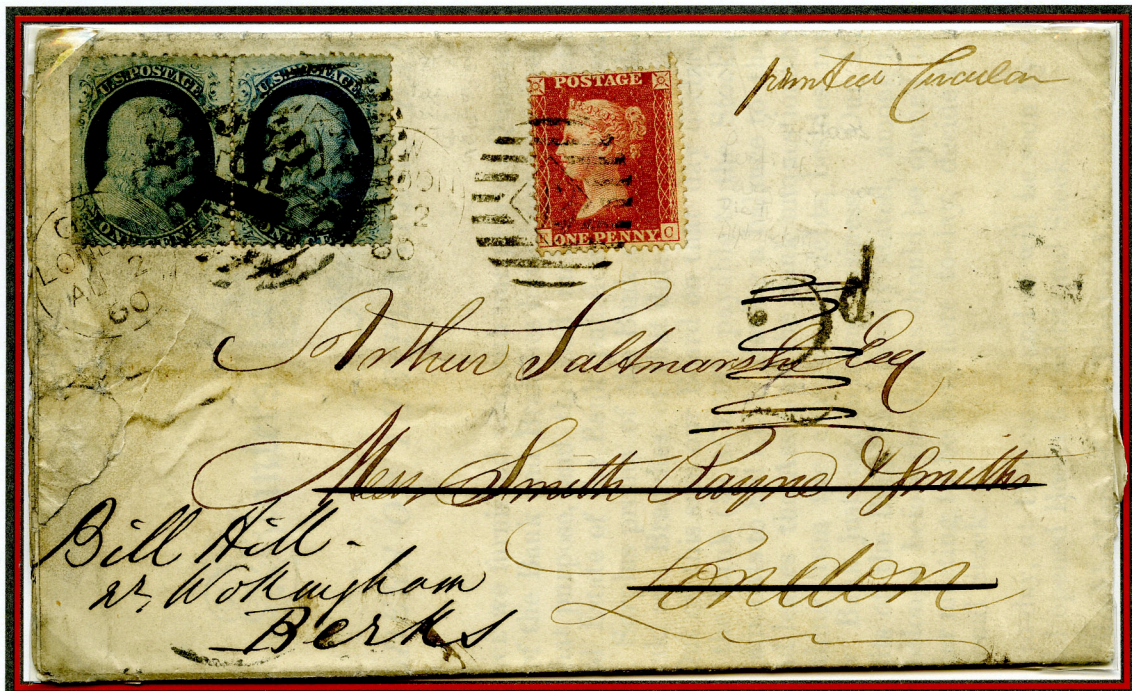 U.S. POSTAGE U.S. POSTAGE
ONE CENT ONE CENT
POSTAGE
N ONE PENNY C
printed Circular
AU 2
60
2
60
d
Arthur Saltmarshe Esq
Messrs Smith Payne & Smiths
London
Bill Hill -
nr. Wokingham
Berks